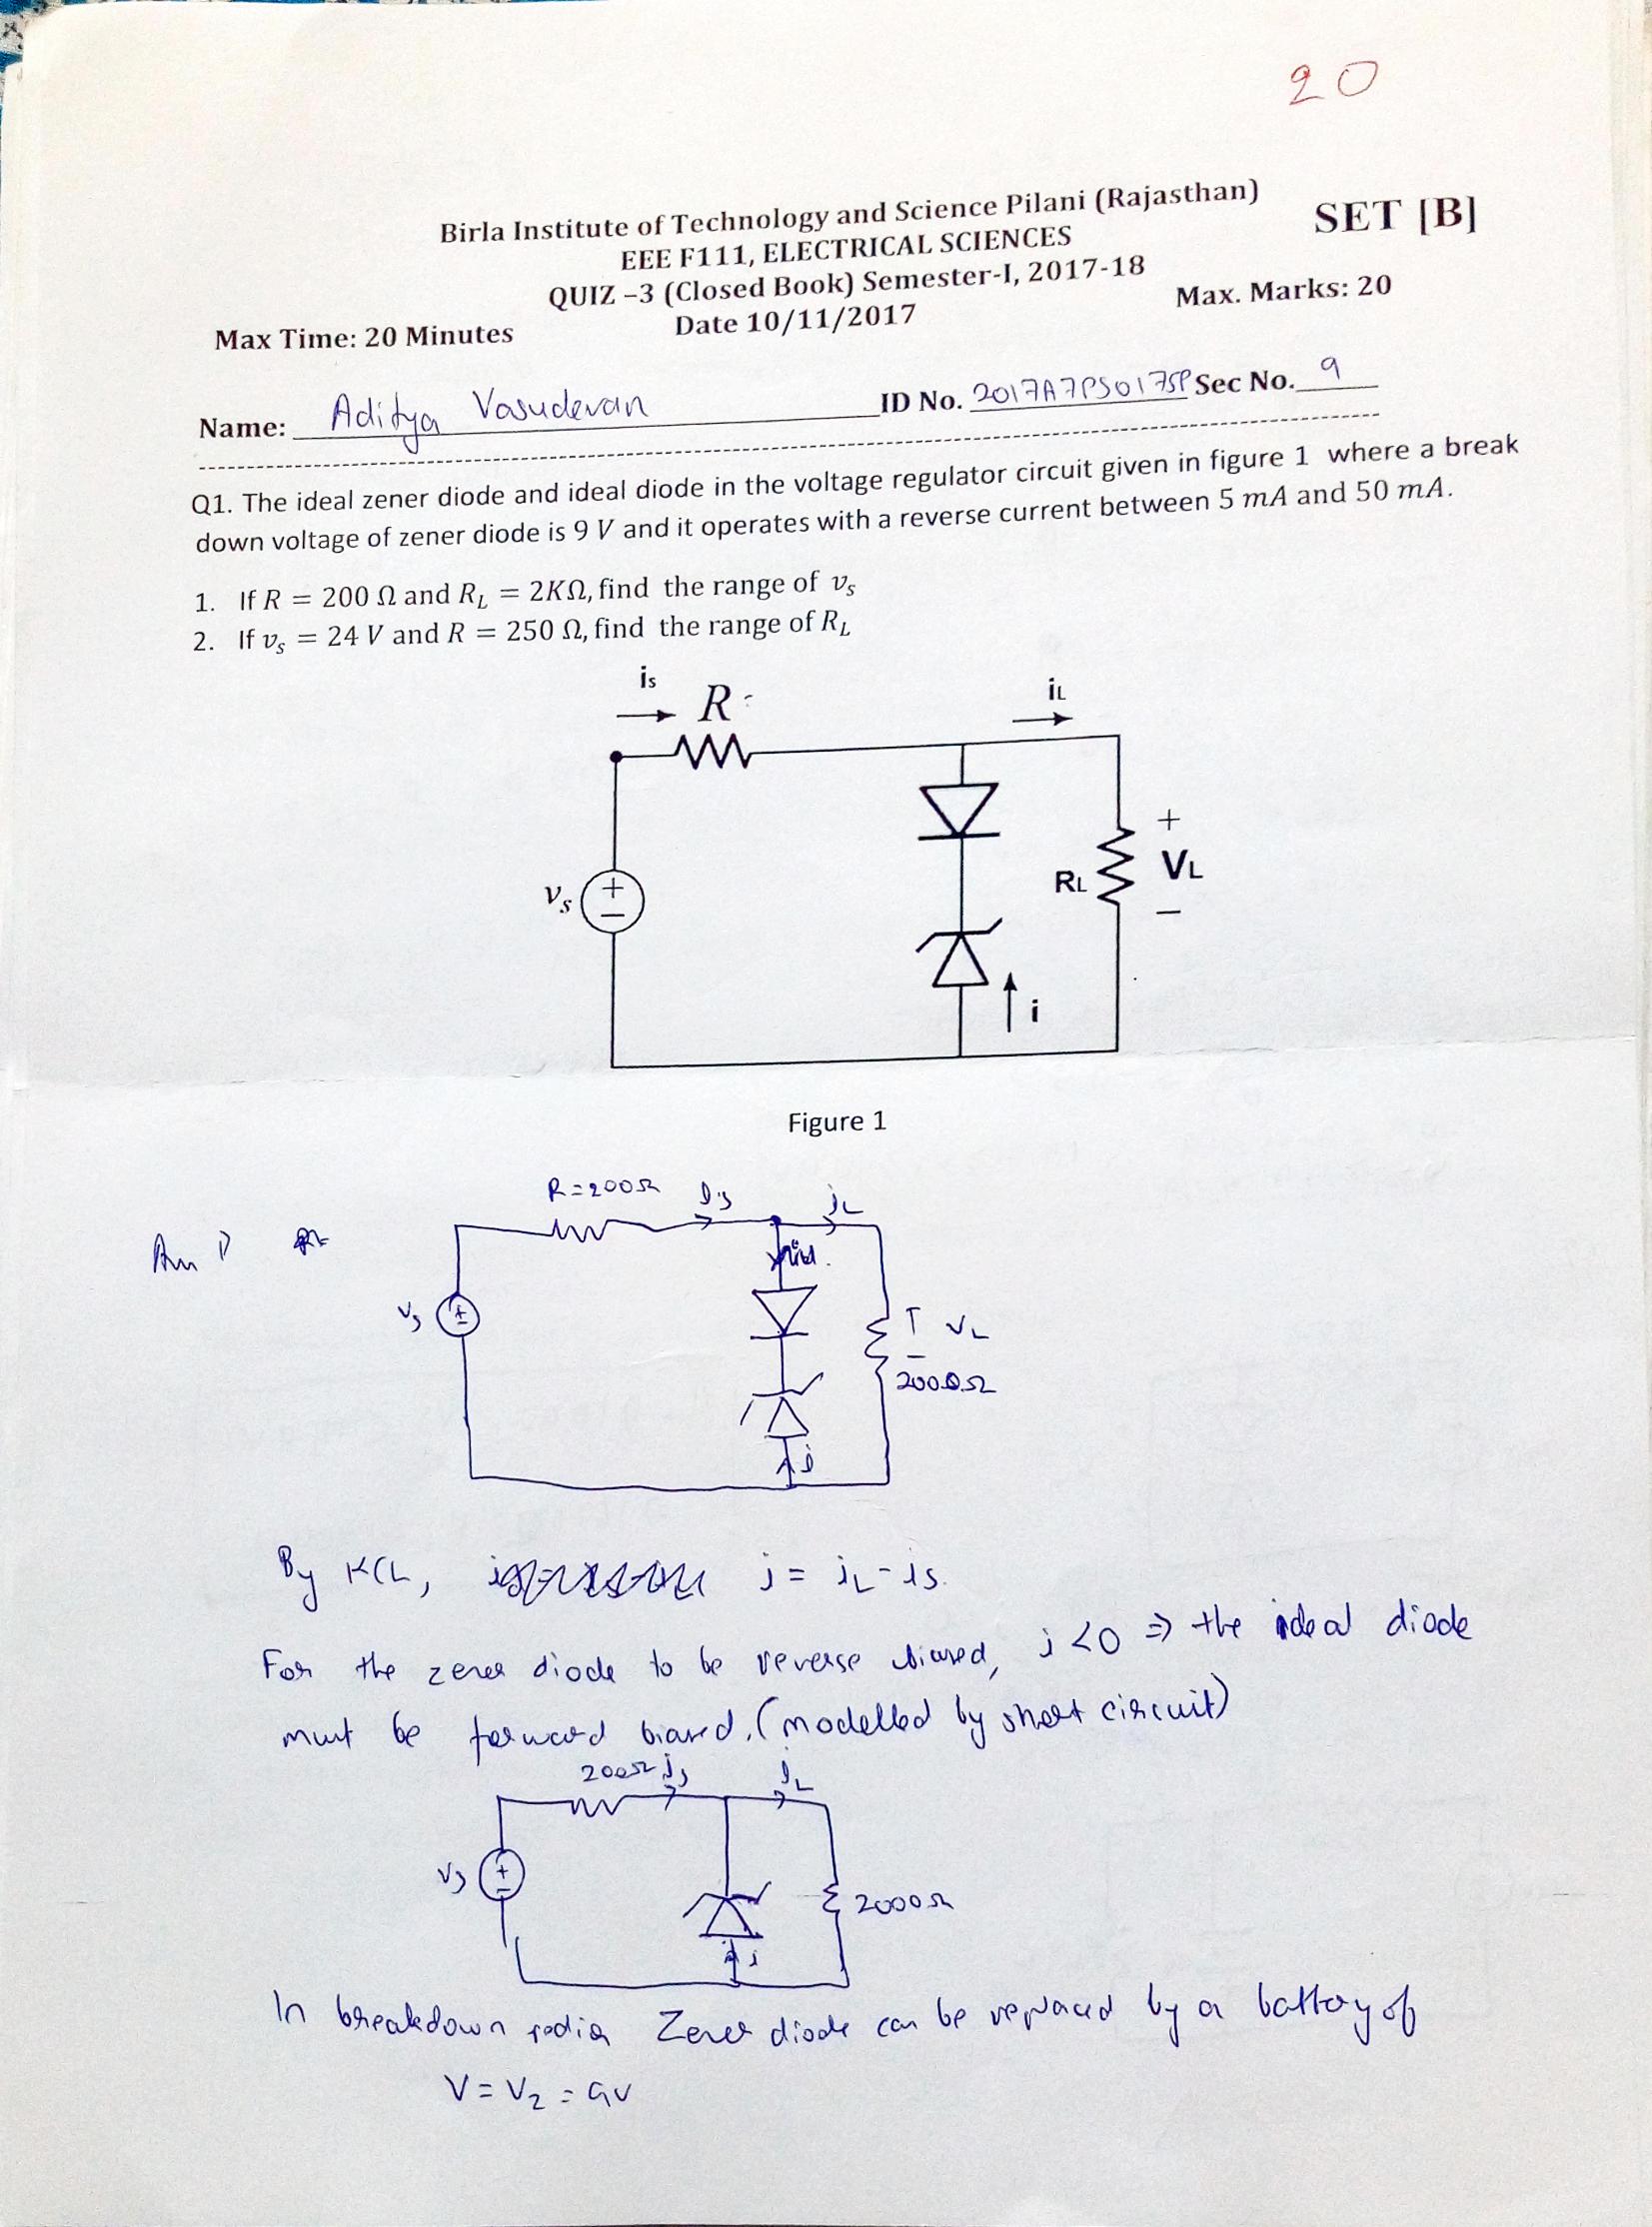 20
Birla Institute of Technology and Science Pilani (Rajasthan)
SET [B]
EEE F111, ELECTRICAL SCIENCES
QUIZ –3 (Closed Book) Semester-I, 2017-18
Max Time: 20 Minutes Date 10/11/2017 Max. Marks: 20
Name: Aditya Vasudevan ID No. 2017A7PS0175P Sec No. 9
Q1. The ideal zener diode and ideal diode in the voltage regulator circuit given in figure 1 where a break
down voltage of zener diode is 9 V and it operates with a reverse current between 5 mA and 50 mA.
1. If R = 200 Ω and R_L = 2KΩ, find the range of v_s
2. If v_s = 24 V and R = 250 Ω, find the range of R_L
is
R
iL
vs
+
−
RL
+
VL
−
i
Figure 1
R=200Ω is iL
Ans 1)
vs
+
−
VL
2000Ω
i
By KCL, i = iL - is.
For the zener diode to be reverse biased, i < 0 ⇒ the ideal diode
must be forward biased. (modelled by short circuit)
200Ω is iL
vs
+
−
2000Ω
i
In breakdown Zener diode can be replaced by a battery of
V = Vz = 9V